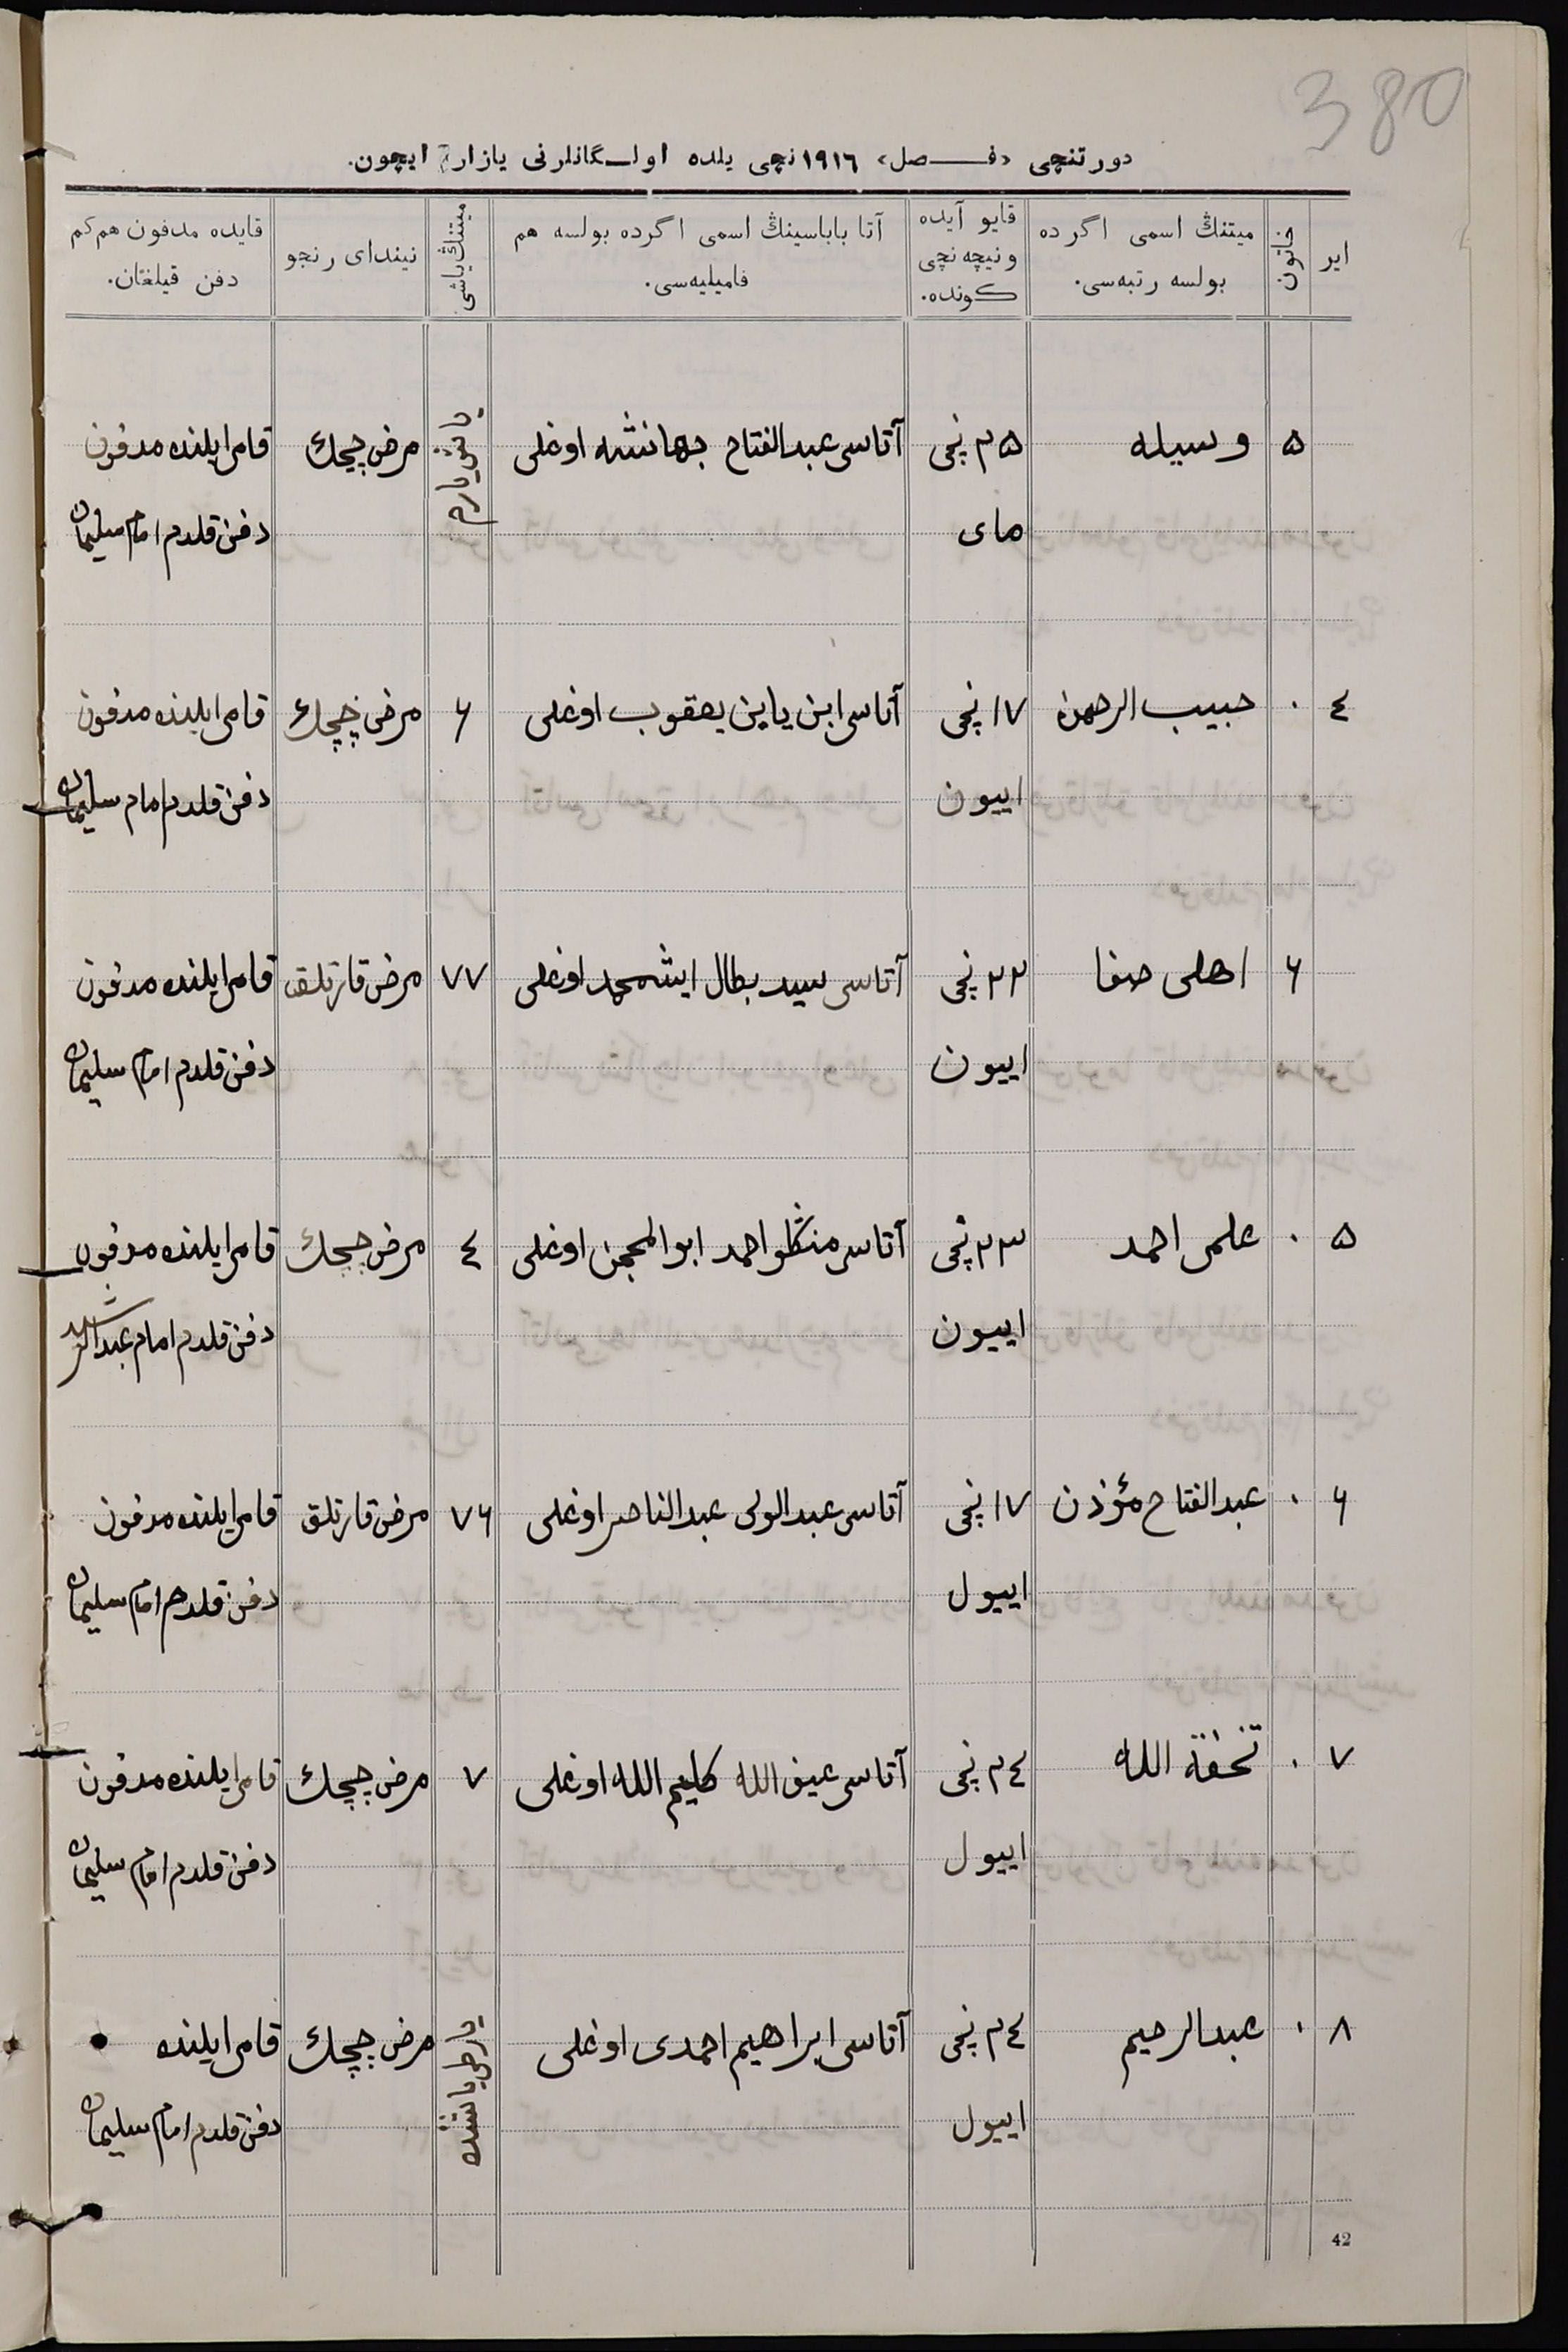 380
دورتنچی «فـــصل» ١٩١٦ نچی یلده اولـــگانلرنی یازار ایچون.
ایر
خاتون
میتنڭ اسمی اگرده بولسه رتبه‌سی.
قایو آیده ونیچه نچی كونده.
آتا باباسینڭ اسمی اگرده بولسه هم فامیلیه‌سی.
میتنڭ یاشی
نیندای رنجو
قایده مدفون هم‌كم دفن قیلغتان.
٥ وسیله ٢٥ نچی آتاسی عبدالفتاح جهانشه اوغلی یاش یارم مرض چچك قام ایلنده مدفون
مای دفن قلدم امام سلیمان
٤ ٠ حبیب الرحمن ١٧ نچی آتاسی ابن یاین یعقوب اوغلی ٦ مرض چچك قام ایلنده مدفون
اییون دفن قلدم امام سلیمان
٦ اهلی صفا ٢٢ نچی آتاسی سید بطال ایشمحمد اوغلی ٧٧ مرض قارتلق قام ایلنده مدفون
اییون دفن قلدم امام سلیمان
٥ ٠ علمی احمد ٢٣ نچی آتاسی منكلواحمد ابوالمحجن اوغلی ٤ مرض چچك قام ایلنده مدفون
اییون دفن قلدم امام عبدالرشید
٦ ٠ عبدالفتاح مؤذن ١٧ نچی آتاسی عبدالولی عبدالناصر اوغلی ٧٦ مرض قارتلق قام ایلنده مدفون
اییول دفن قلدم امام سلیمان
٧ ٠ تحفة الله ٢٤ نچی آتاسی عیف الله كلیم الله اوغلی ٧ مرض چچك قام ایلنده مدفون
اییول دفن قلدم امام سلیمان
٨ ٠ عبدالرحیم ٢٤ نچی آتاسی ابراهیم احمدی اوغلی یاشنده مرض چچك قام ایلنده
اییول دفن قلدم امام سلیمان
42